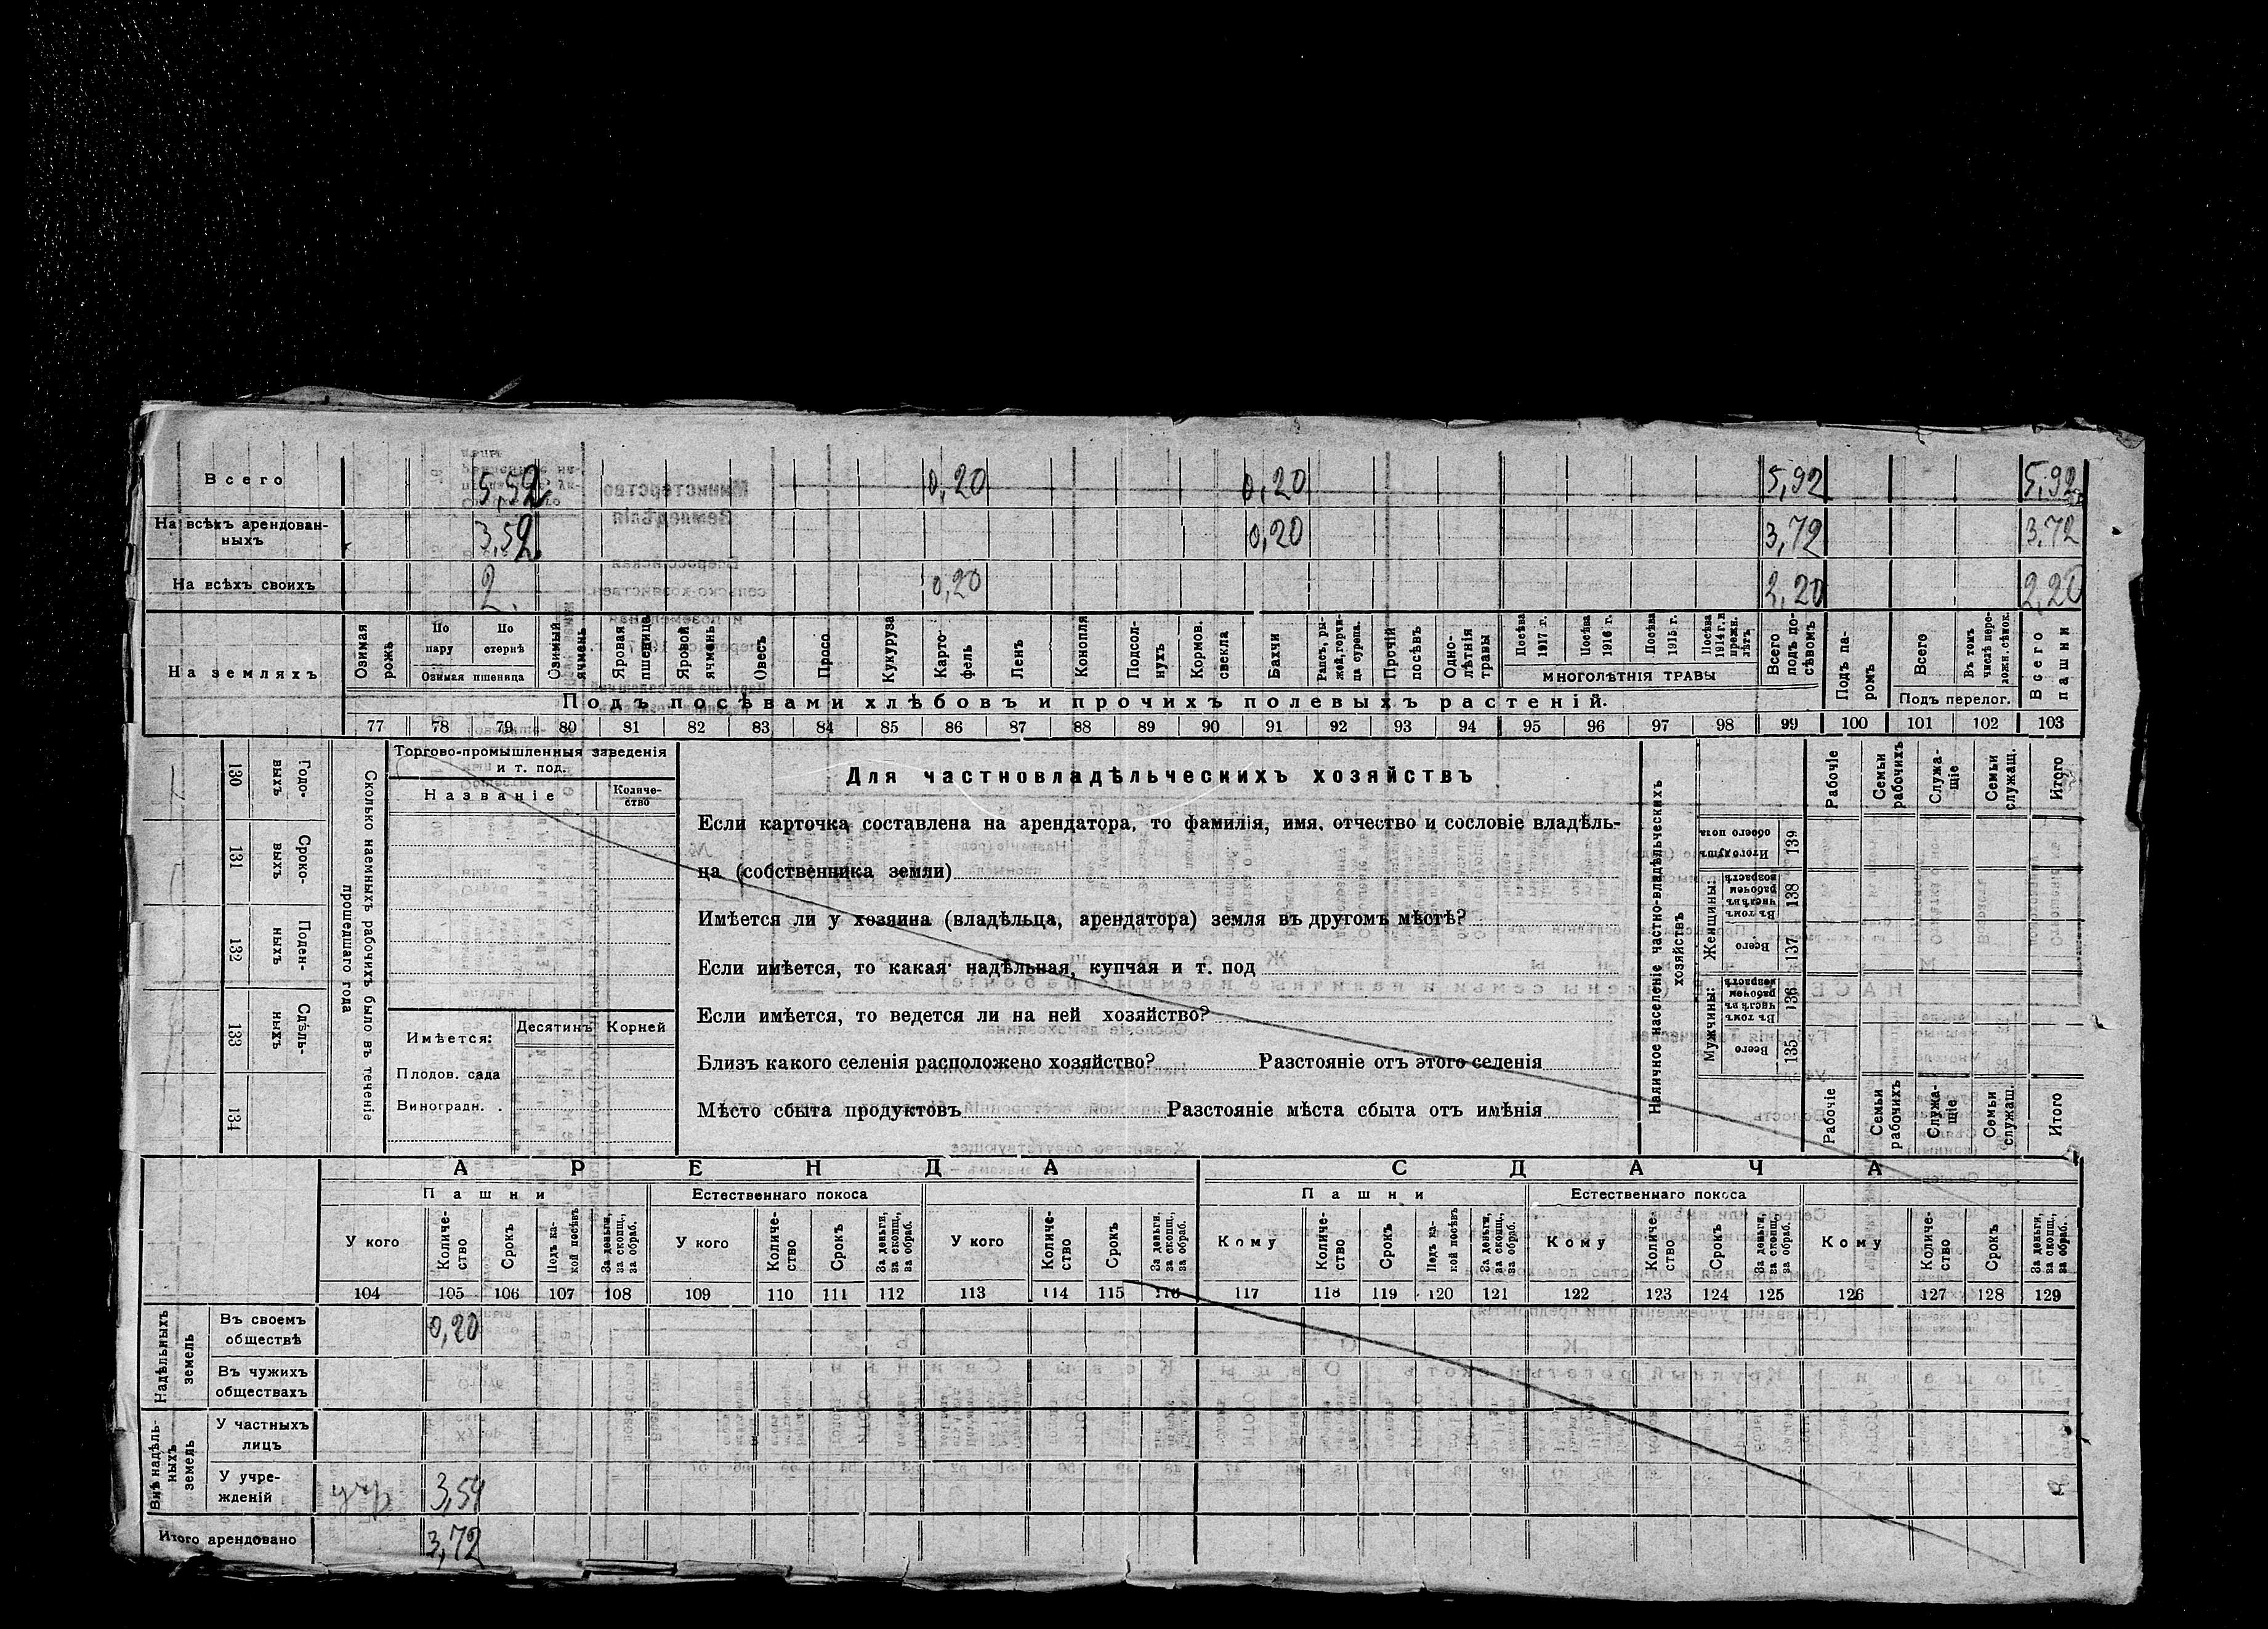 Всего 5,52 0,20 0,20 5,92 5,92
На всѣхъ арендован-
ныхъ 3,52 0,20 3,72 3.72
На всѣхъ своихъ 2. 0,20 2,20 2,20
На земляхъ
Озимая рожь
По пару
По стернѣ
Озимая пшеница
Озимый ячмень
Яровая пшеница
Яровой ячмень
Овесъ
Просо
Кукуруза
Карто-
фель
Ленъ
Конопля
Подсол-
нухъ
Кормов.
свекла
Бахчи
Рапсъ, ры-
жей, горчи-
ца сурепа.
Прочій
посѣвъ
Одно-
лѣтнія
травы
Посѣва
1917 г.
Посѣва
1916 г.
Посѣва
1915 г.
Посѣва
1914 г. и
прежн.
лѣтъ
МНОГОЛѢТНІЯ ТРАВЫ
Всего
подъ по-
сѣвомъ
Подъ па-
ромъ
Всего
Въ томъ
числѣ пере-
ложн. сѣнок.
Подъ перелог.
Всего
пашни
Подъ посѣвами хлѣбовъ и прочихъ полевыхъ растеній.
77 78 79 80 81 82 83 84 85 86 87 88 89 90 91 92 93 94 95 96 97 98 99 100 101 102 103
130 Годо-
выхъ
131 Сроко-
выхъ
132 Поден-
ныхъ
133 Сдѣль-
ныхъ
134
Сколько наемныхъ рабочихъ было въ теченіе
прошедшаго года
Торгово-промышленныя заведенія
и т. под.
Названіе
Количе-
ство
Имѣется:
Десятинъ Корней
Плодов. сада
Виноградн. .
Для частновладѣльческихъ хозяйствъ
Если карточка составлена на арендатора, то фамилія, имя, отчество и сословіе владѣль-
ца (собственника земли)
Имѣется ли у хозяина (владѣльца, арендатора) земля въ другомъ мѣстѣ?
Если имѣется, то какая надѣльная, купчая и т. под
Если имѣется, то ведется ли на ней хозяйство?
Близъ какого селенія расположено хозяйство? Разстояніе отъ этого селенія
Мѣсто сбыта продуктовъ Разстояніе мѣста сбыта отъ имѣнія
Наличное населеніе частно-владѣльческихъ
хозяйствъ
Рабочіе
Семьи
рабочихъ
Служа-
щіе
Семьи
служащ.
Итого
Итого душъ
обоего пола
139
Женщины:
Въ томъ
числѣ въ
рабочемъ
возрастѣ
138
Всего
137
Мужчины:
Въ томъ
числѣ въ
рабочемъ
возрастѣ
136
Всего
135
Рабочіе
Семьи
рабочихъ
Служа-
щіе
Семьи
служащ.
Итого
АРЕНДА СДАЧА
Пашни Естественнаго покоса Пашни Естественнаго покоса
У кого
Количе-
ство
Срокъ
Подъ ка-
кой посѣвъ
За деньги,
за скопщ.,
за обраб.
У кого
Количе-
ство
Срокъ
За деньги,
за скопщ.,
за обраб.
У кого
Количе-
ство
Срокъ
За деньги,
за скопщ.,
за обраб.
Кому
Количе-
ство
Срокъ
Подъ ка-
кой посѣвъ
За деньги,
за скопщ.,
за обраб.
Кому
Количе-
ство
Срокъ
За деньги,
за скопщ.,
за обраб.
Кому
Количе-
ство
Срокъ
За деньги,
за скопщ.,
за обраб.
104 105 106 107 108 109 110 111 112 113 114 115 116 117 118 119 120 121 122 123 124 125 126 127 128 129
Надѣльныхъ
земель
Въ своемъ
обществѣ 0,20
Въ чужихъ
обществахъ
Внѣ надѣль-
ныхъ
земель
У частныхъ
лицъ
У учре-
жденій учр 3,52
Итого арендовано 3,72